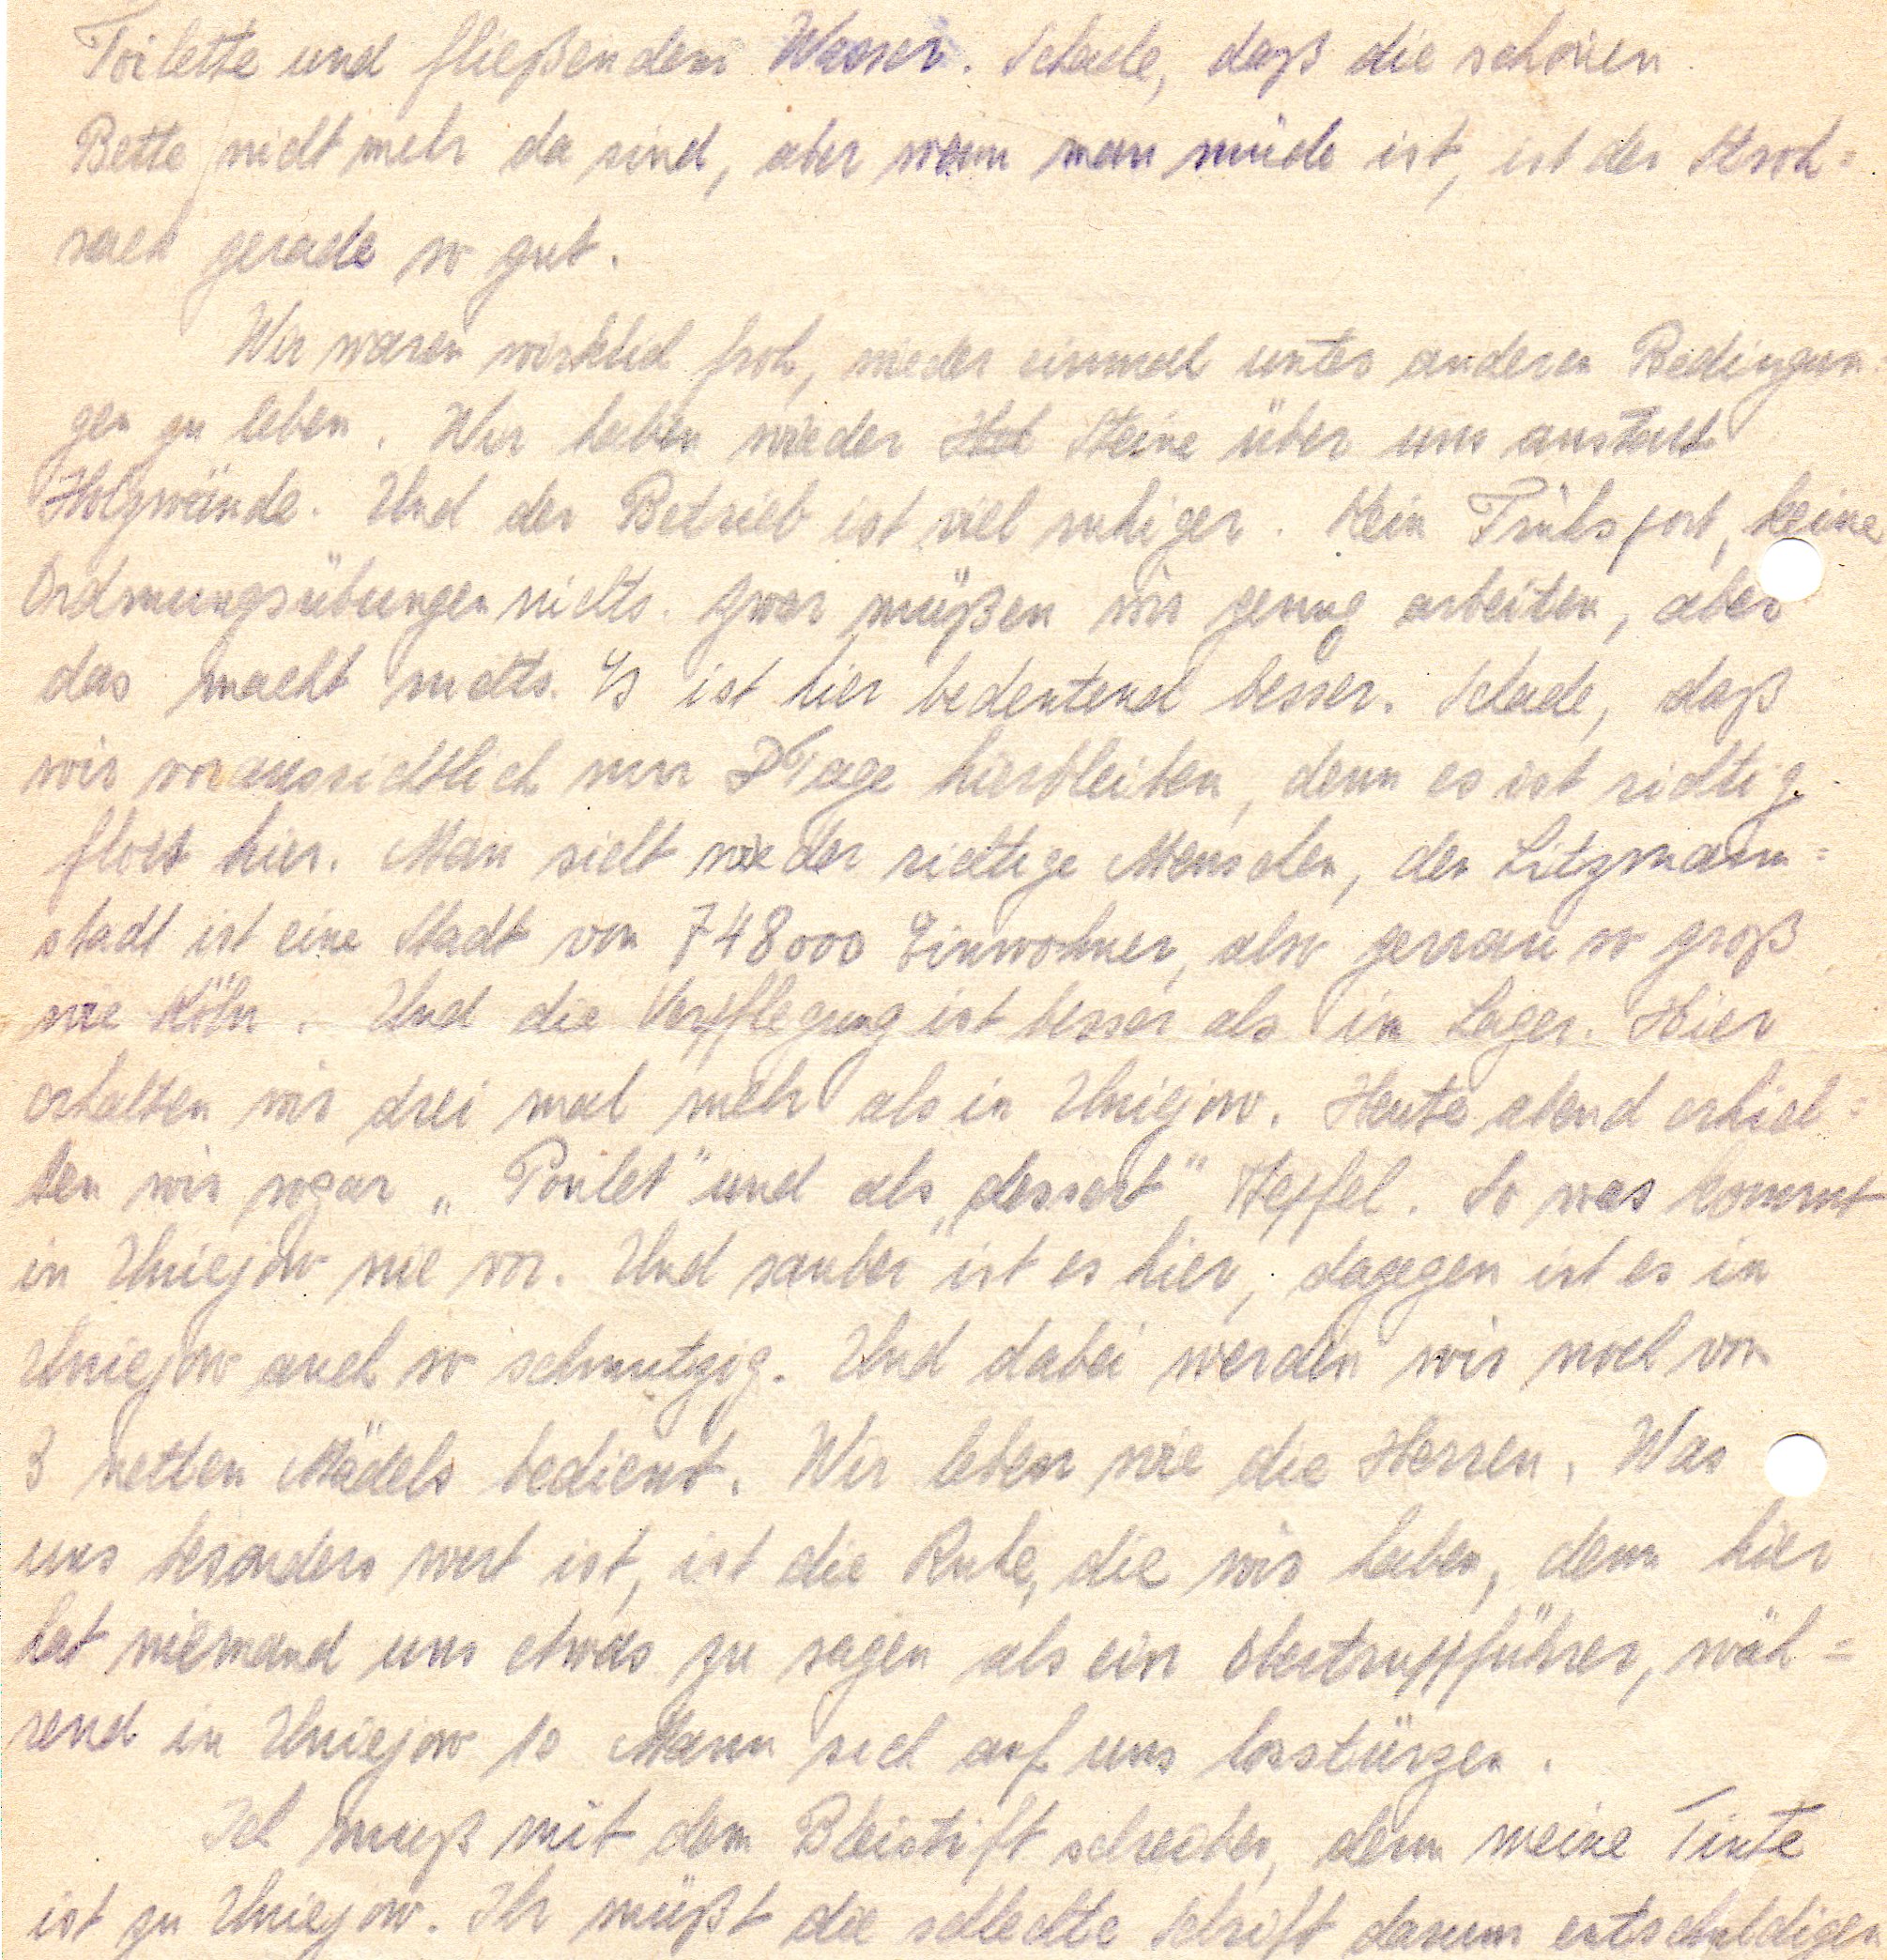 Toilette und fließendem Wasser. Schade, daß die schönen
Bette nicht mehr da sind, aber wenn man müde ist, ist der Stroh=
sack gerade so gut.
Wir waren wirklich froh, wieder einmal unter anderen Bedingun=
gen zu leben. Wir haben wieder Steine über uns anstatt
Holzwände. Und der Betrieb ist viel ruhiger. Kein Frühsport, keine
Ordnungsübungen nichts. Zwar müßen wir genug arbeiten, aber
das macht nichts. Es ist hier bedeutend besser. Schade, daß
wir voraussichtlich nur Tage hierbleiben, denn es ist richtig
flott hier. Man sieht wieder richtige Menschen, den Litzmann=
stadt ist eine Stadt von 748000 Einwohner, also genau so groß
wie Köln. Und die Verpflegung ist besser als im Lager. Hier
erhalten wir drei mal mehr als in Uniejow. Heute abend erhiel=
ten wir sogar „Poulet" und als „dessert" Aepfel. So was kommt
in Uniejow nie vor. Und sauber ist es hier, dagegen ist es in
Uniejow auch so schmutzig. Und dabei werden wir noch von
3 netten Mädels bedient. Wir leben wie die Herren. Was
uns besonders wert ist, ist die Ruhe, die wir haben, denn hier
hat niemand uns etwas zu sagen als ein Obertruppführer, wäh=
rend in Uniejow 10 Mann sich auf uns losstürzen.
Ich muß mit dem Bleistift schreiben, denn meine Tinte
ist zu Uniejow. Ihr müßt die schlechte Schrift darum entschuldigen